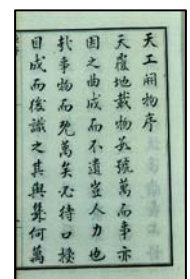 天工開物序
天覆地載物數號萬而事亦
因之曲成而不遺豈人力也
哉事物而既萬矣必待口授
目成而後識之其與幾何萬